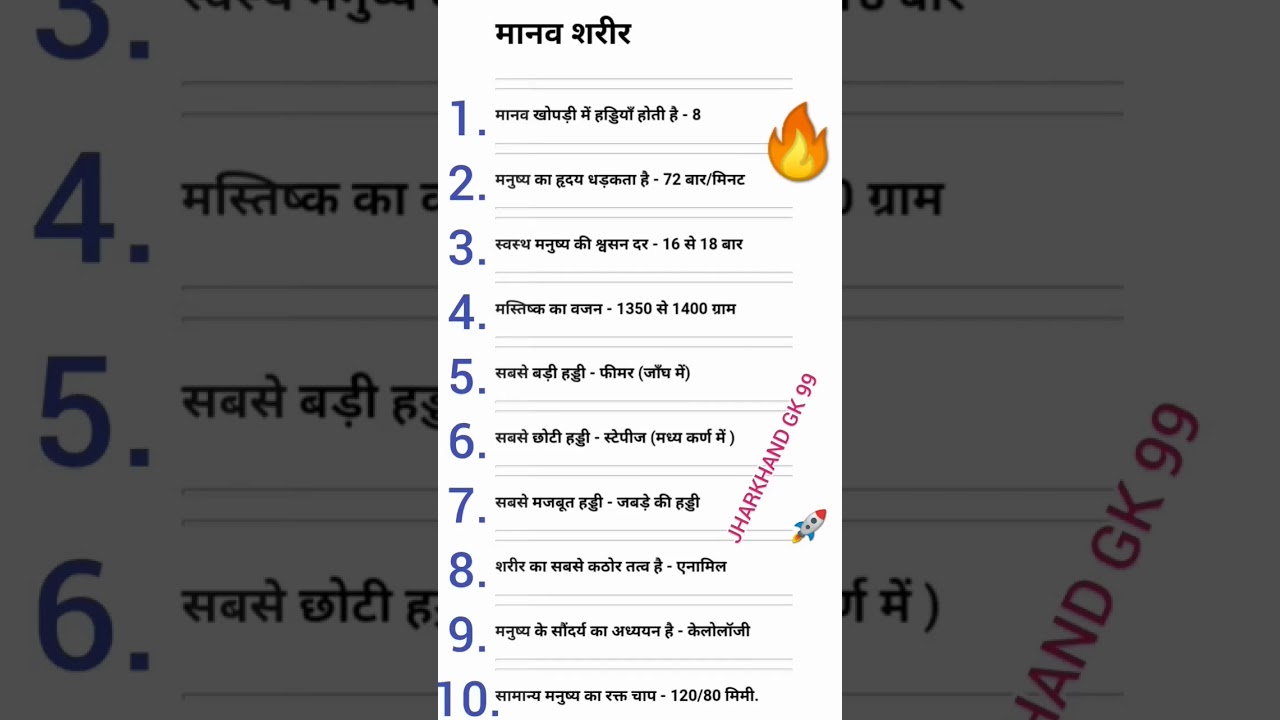 मानव शरीर
1. मानव खोपड़ी में हड्डियाँ होती है - 8
2. मनुष्य का हृदय धड़कता है - 72 बार/मिनट
3. स्वस्थ मनुष्य की श्वसन दर - 16 से 18 बार
4. मस्तिष्क का वजन - 1350 से 1400 ग्राम
5. सबसे बड़ी हड्डी - फीमर (जाँघ में)
6. सबसे छोटी हड्डी - स्टेपीज (मध्य कर्ण में )
7. सबसे मजबूत हड्डी - जबड़े की हड्डी
8. शरीर का सबसे कठोर तत्व है - एनामिल
9. मनुष्य के सौंदर्य का अध्ययन है - केलोलॉजी
10. सामान्य मनुष्य का रक्त चाप - 120/80 मिमी.
JHARKHAND GK 99
3.
4. मस्तिष्क का
ग्राम
5. सबसे बड़ी
6. सबसे छोटी
में )
HAND GK 99